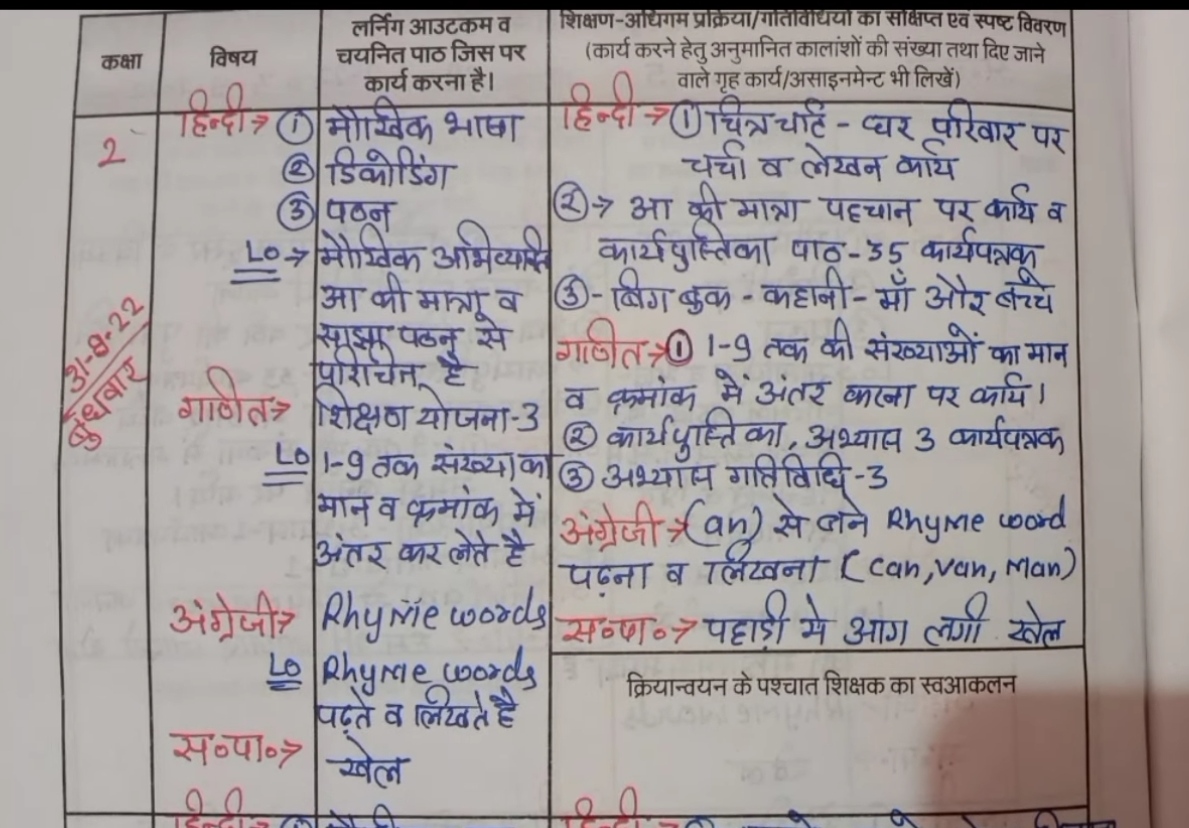 कक्षा
विषय
लर्निंग आउटकम व
चयनित पाठ जिस पर
कार्य करना है।
शिक्षण-अधिगम प्रक्रिया/गतिविधियों का संक्षिप्त एवं स्पष्ट विवरण
(कार्य करने हेतु अनुमानित कालांशों की संख्या तथा दिए जाने
वाले गृह कार्य/असाइनमेन्ट भी लिखें)
2
31-8-22
बुधवार
हिन्दी → ① मौखिक भाषा
② डिकोडिंग
③ पठन
LO → मौखिक अभिव्यक्ति
आ की मात्रा व
साझा पठन से
परिचित है
गणित → शिक्षण योजना-3
LO 1-9 तक संख्या का
मान व क्रमांक में
अंतर कर लेते है
अंग्रेजी → Rhyme words
LO Rhyme words
पढ़ते व लिखते है
स०पा० → खेल
हिन्दी → ① चित्र चार्ट - घर परिवार पर
चर्चा व लेखन कार्य
② → आ की मात्रा पहचान पर कार्य व
कार्यपुस्तिका पाठ-35 कार्यपत्रक
③ - बिग बुक - कहानी - माँ और बच्चे
गणित → ① 1-9 तक की संख्याओं का मान
व क्रमांक में अंतर करना पर कार्य।
② कार्यपुस्तिका, अभ्यास 3 कार्यपत्रक
③ अभ्यास गतिविधि-3
अंग्रेजी → (an) से बने Rhyme word
पढ़ना व लिखना (can, van, man)
स०पा० → पहाड़ी मे आग लगी खेल
क्रियान्वयन के पश्चात शिक्षक का स्वआकलन
हिन्दी →
हिन्दी →